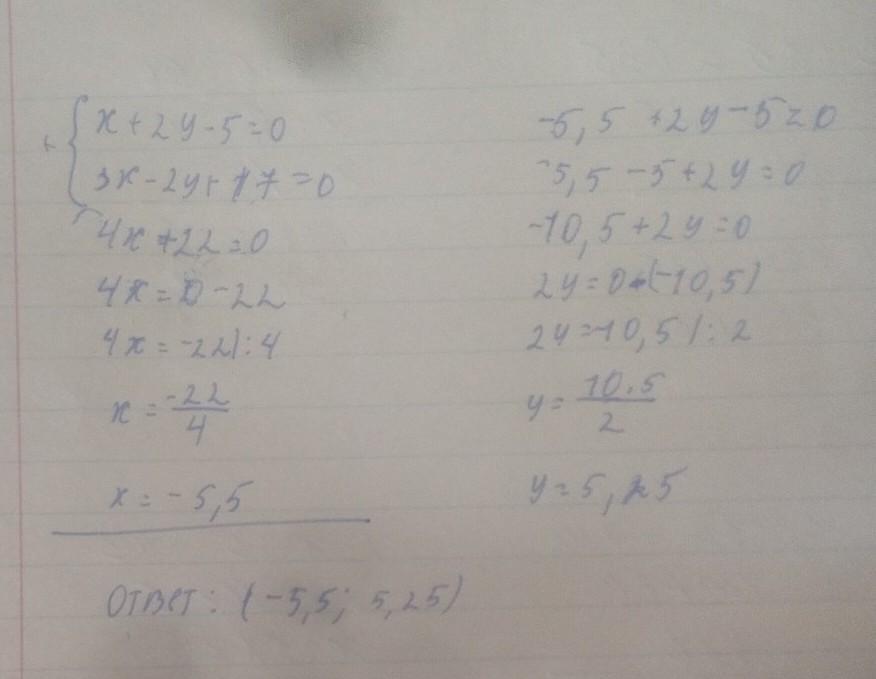 x+2y-5=0
3x-2y+17=0
4x+22=0
4x=0-22
4x=-22|:4
x=-22/4
x=-5,5
-5,5+2y-5=0
-5,5-5+2y=0
-10,5+2y=0
2y=0-(-10,5)
2y=10,5|:2
y=10.5/2
y=5,25
Ответ: (-5,5; 5,25)